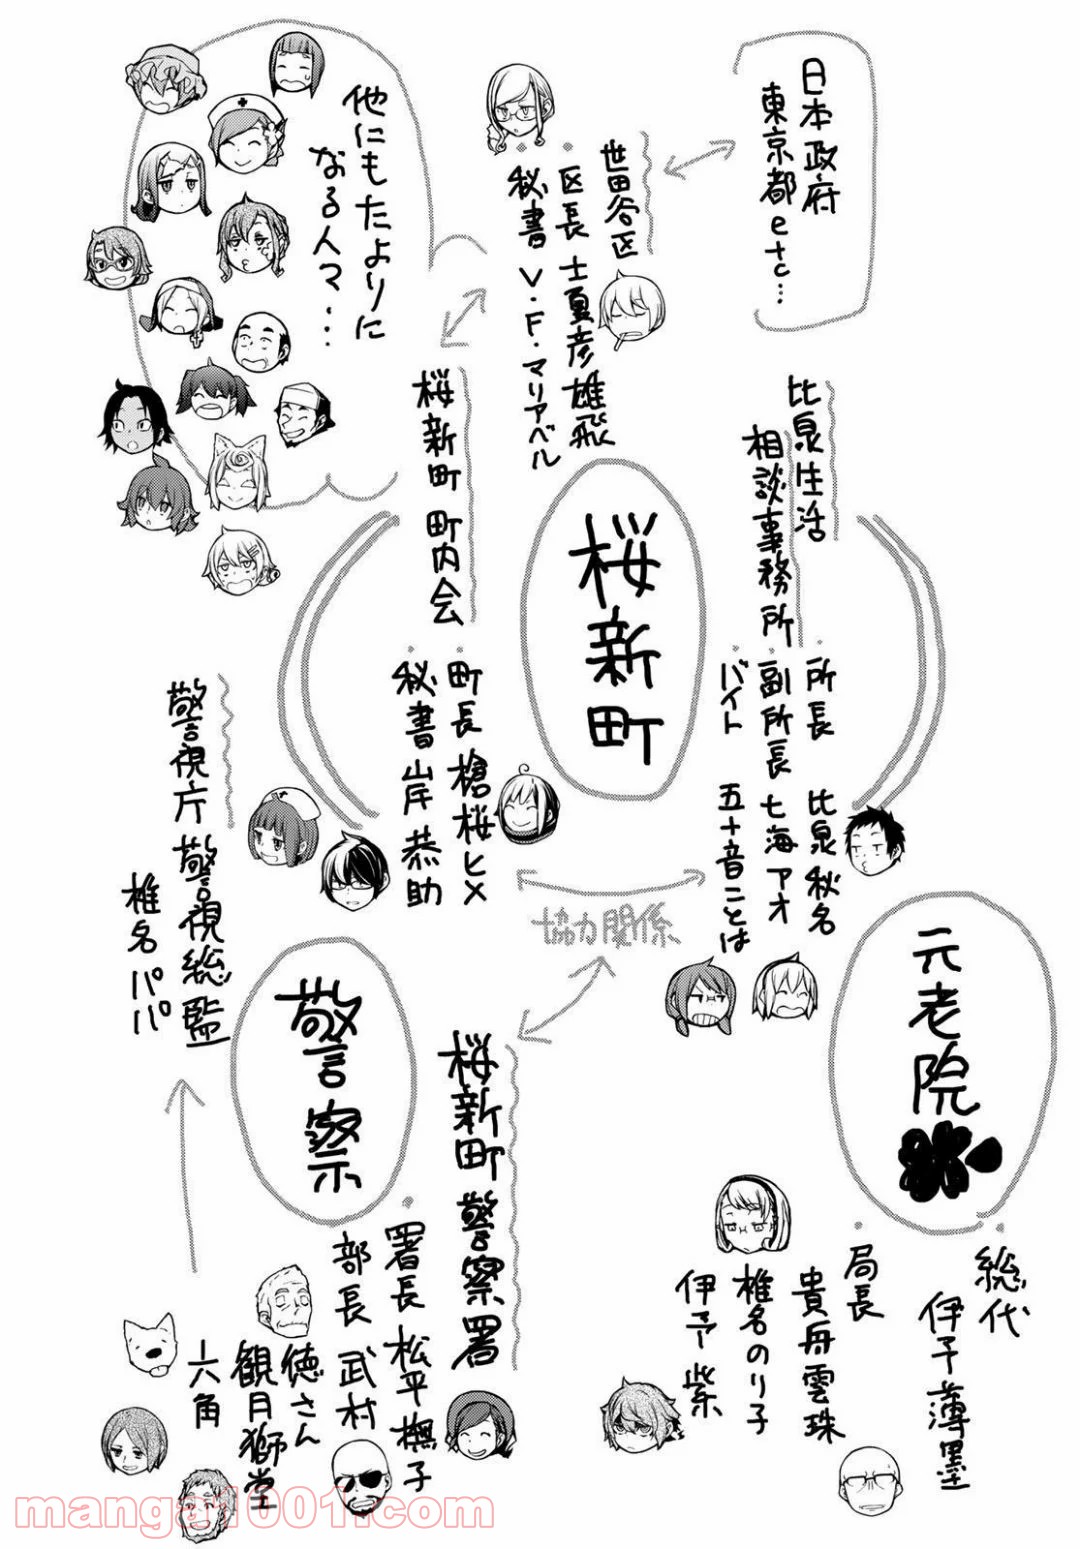 日本政府
東京都etc…
世田谷区
区長 士夏彦雄飛
秘書 V・F・マリアベル
他にもたよりに
なる人々・・・
比泉生活
相談事務所
所長 比泉秋名
副所長 七海アオ
バイト 五十音ことは
桜新町
桜新町町内会
町長 槍桜ヒメ
秘書 岸恭助
協力関係
警視庁 警視総監
椎名パパ
元老院
総代 伊予薄墨
局長 貴舟雲珠
椎名のり子
伊予紫
警察
桜新町警察署
署長 松平撫子
部長 武村
徳さん
観月獅堂
六角
manga1001.com